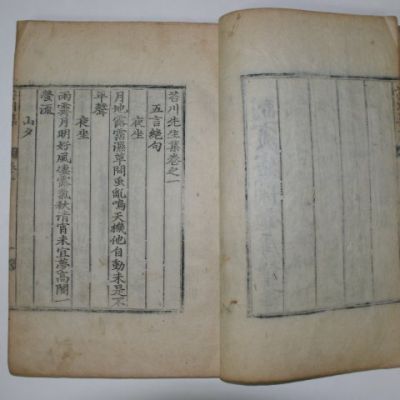 苔川先生集卷之一
五言絶句
夜坐
月地露露濕草間虫亂鳴天機他自動未是不
平聲
夜坐
雨霽月明好風凄露氣秋清宵未宜夢高閣一
螢流
山夕